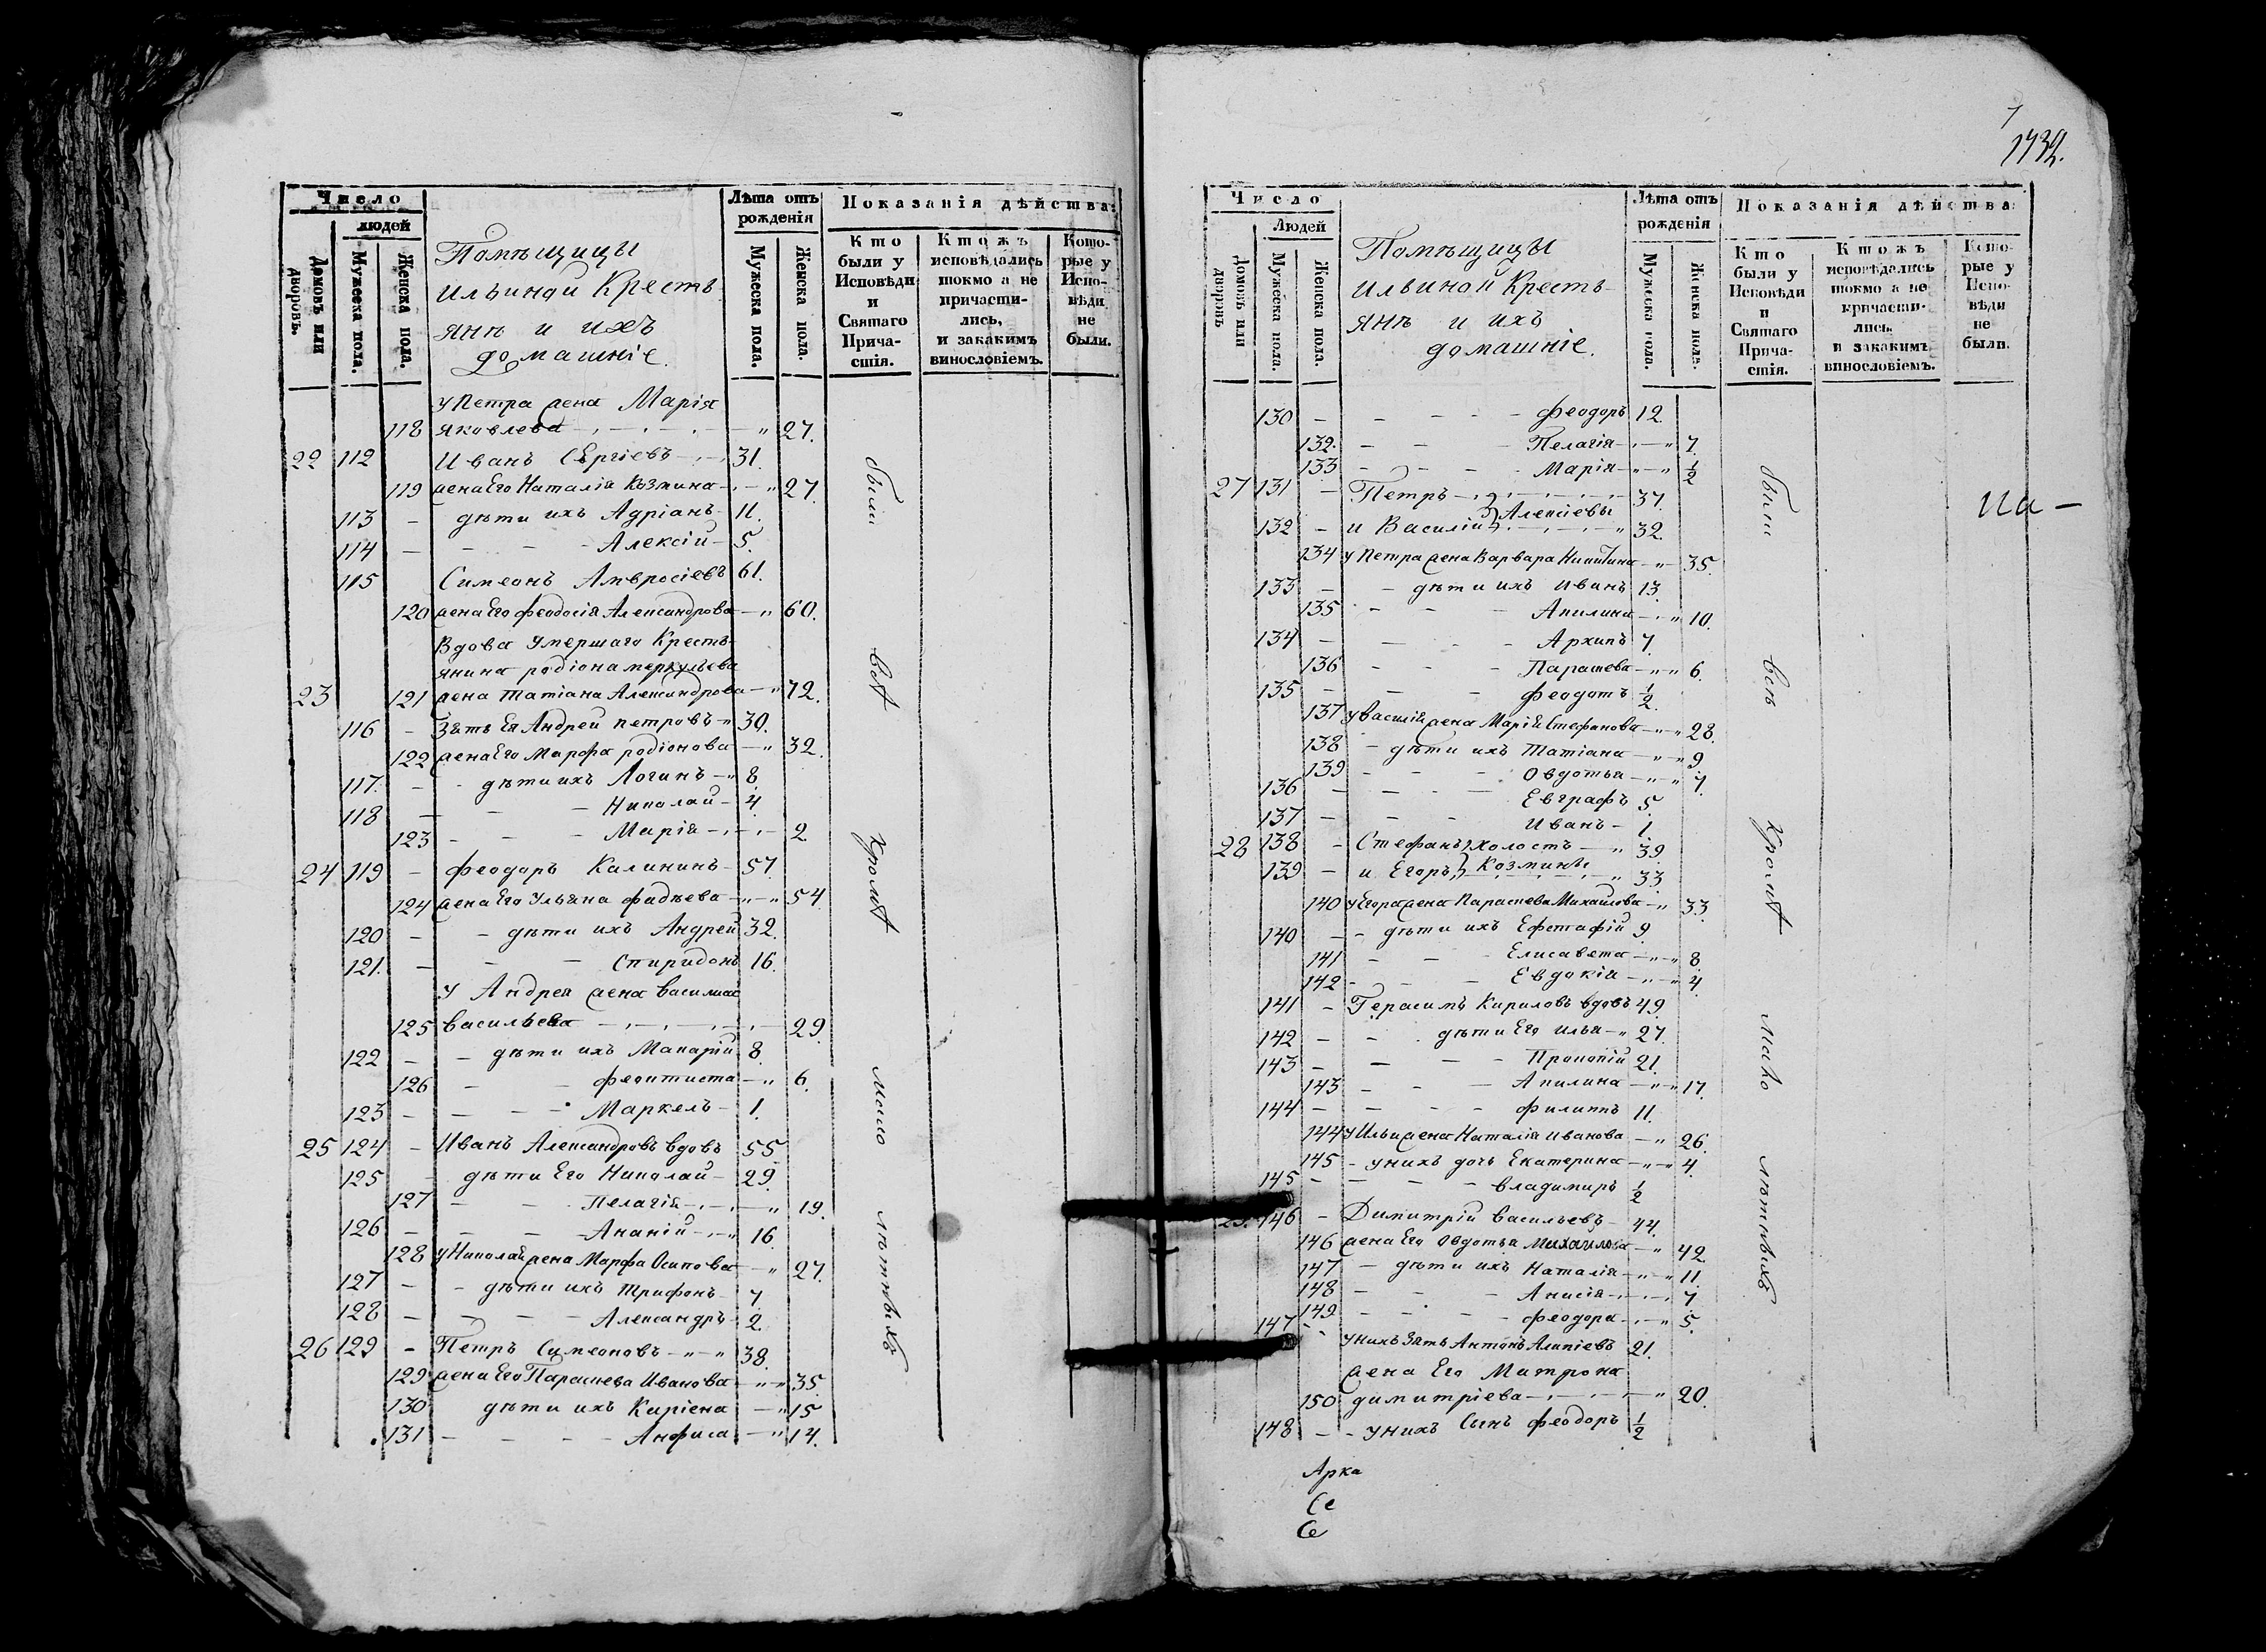 Число
людей
Домовъ или дворовъ.
Мужеска пола.
Женска пола.
Помѣщицы
Ильиной Кресть
янѣ и ихъ
домашніе.
Лѣта отъ рожденія
Мужеска пола.
Женска пола.
Показанія дѣйства:
Кто были у Исповѣди и Святаго Прича- стія.
Ктожъ исповѣдались токмо а не причасти- лись, и закакимъ винословіемъ.
Кото- рые у Испо- вѣди не были.
у Петра жена Марія
118 Яковлева 27.
22 112 Иванъ Сергіевъ 31.
119 жена Его Наталія Козмина 27.
113 дѣти ихъ Адріанъ 11.
114 Алексій 5.
115 Симеонъ Амвросіевъ 61.
120 жена Его Феодосія Александрова 60.
Вдова Умершаго Кресть-
янина родіона меркульева
23 121 жена татіана Александрова 72.
116 Зять Ея Андрей петровъ 30.
122 жена Его Марфа родіонова 32.
117 дѣти ихъ Логинъ 8
118 Николай 4.
123 Марія 2
24 119 феодоръ Калининъ 57.
124 жена Его Ульяна фадѣева 54
120 дѣти ихъ Андрей 32.
121. Спиридонъ 16.
у Андрея жена василиса
125 васильева 29.
122 дѣти ихъ Макарій 8.
126 феоктиста 6.
123 Маркелъ 1.
25 124 Иванъ Александровъ вдовъ 55
125 дѣти Его Николай 29.
127 Пелагія 19.
126 Ананій 16
128 у Николая жена Марфа Осипова 27.
127 дѣти ихъ трифонъ 7
128 Александръ 2.
26 129 Петръ Симеоновъ 38.
129 жена Его Параскева Иванова 35
130 дѣти ихъ Киріена 15
131 Анфиса 14.
были всѣ кромѣ мало лѣтнѣихъ
1732.
Число
Людей
Домовъ или дворовъ
Мужеска пола.
Женска пола.
Помѣщицы
Ильиной Кресть-
янѣ и ихъ
домашніе.
Лѣта отъ рожденія
Мужеска пола.
Женска пола.
Показанія дѣйства:
Кто были у Исповѣди и Святаго Прича- стія.
Ктожъ исповѣдались токмо а не причасти- лись. и закакимъ винословіемъ.
Кото- рые у Испо- вѣди не были.
130 феодоръ 12
132. Пелагія 7.
133 Марія ½
27 131 Петръ 37.
Алексіевы
132 и Василій 32.
134 у Петра жена Варвара Никитина 35.
133 дѣти ихъ иванъ 13.
135 Акилина 10.
134 Архипъ 7.
136 Параскева 6.
135 феодотъ ½
137 у василія жена Марія Стефанова 28.
138 дѣти ихъ татіана 9
139 Овдотья 7.
136 Евграфъ 5.
137 Иванъ 1
28 138 Стефанъ холостъ 39.
Козмины
139 и Егоръ 33
140 у Егора жена Параскева Михайлова 33
140 дѣти ихъ Ефстафій 9.
141 Елисавета 8.
142 Евдокія 4
141 Герасимъ Кириловъ вдовъ 49.
142 дѣти Его илья 27.
143 Прокопій 21.
143 Акилина 17.
144 филиппъ 11.
144 у Ильи жена Наталія иванова 26.
145 у нихъ дочь Екатерина 4.
145 владимиръ ½
146 Димитрій васильевъ 44.
146 жена Его Овдотья Михайлова 42
147 дѣти ихъ Наталія 11.
148 Анисія 7
149 феодора 5.
147 у нихъ Зять Антонъ Алипіевъ 21.
жена Его Матрона
150 димитріева 20.
148 у нихъ Сынъ феодоръ ½
были всѣ кромѣ мало лѣтнѣихъ
на -
Арка
Се
Се